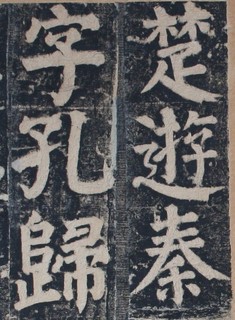 楚遊秦
字孔歸